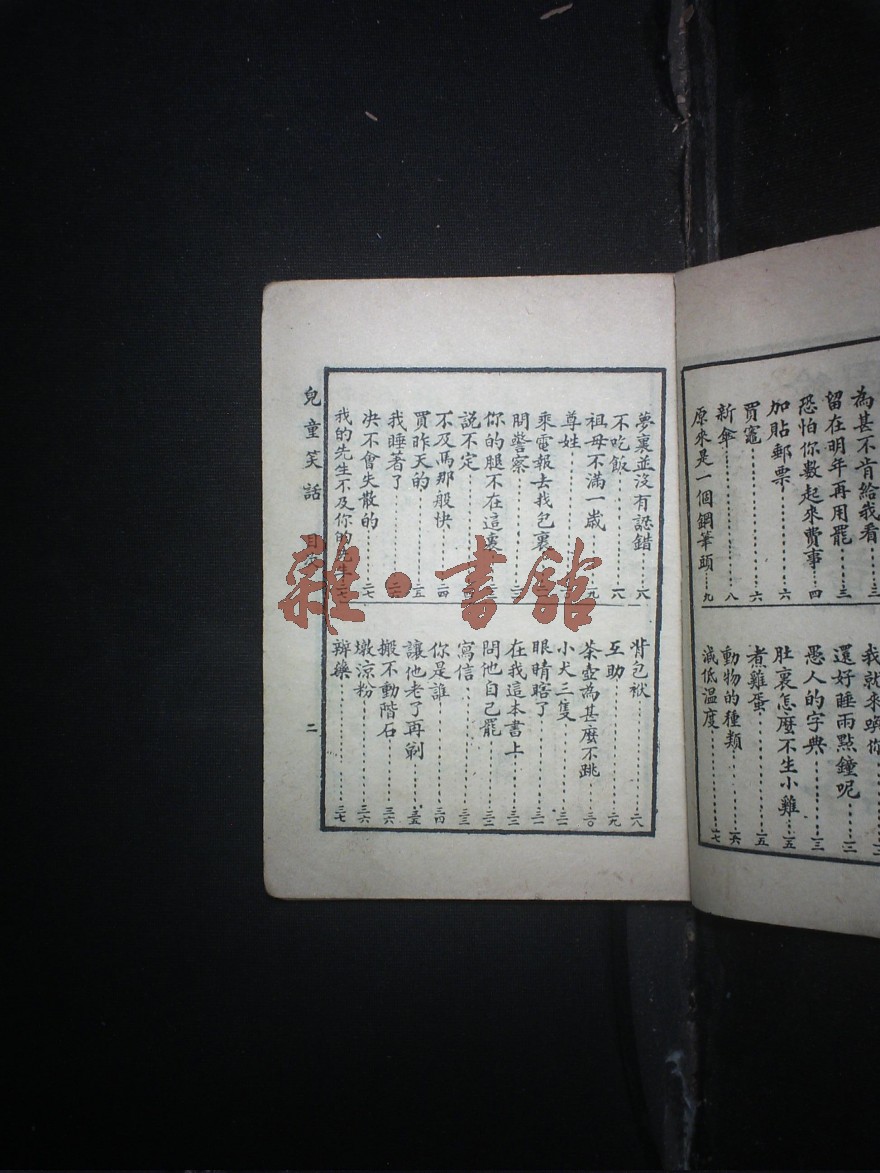 為甚不肯給我看……三
留在明年再用罷……三
恐怕你數起來費事……四
加貼郵票……六
買竈……六
新傘……八
原來是一個鋼筆頭……九
我就來喚你
還好睡兩點鐘呢……一二
愚人的字典……一三
肚裏怎麼不生小雞……一五
煮雞蛋……一五
動物的種類……一六
減低溫度……一七
夢裏並沒有認錯……一八
不吃飯……一八
祖母不滿一歲……一九
尊姓
乘電報去找包裹
問警察
你的腿不在這裏
說不定
不及馬那般快……二四
買昨天的……二五
我睡著了
決不會失散的……二七
我的先生不及你的先生……二七
背包袱……二八
互助……二九
茶壺為甚麼不跳……三〇
小犬三隻……三一
眼睛瞎了……三一
在我這本書上……三二
問他自己罷……三二
寫信……三三
你是誰……三四
讓他老了再剃……三五
搬不動階石……三六
墩涼粉……三六
辦藥……三七
兒童笑話 目次 二
雜·書館